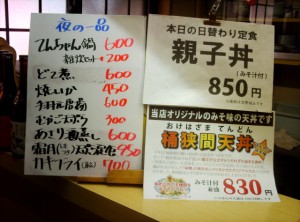 夜の一品
てんちゃん鍋 600
雑炊セット +200
どて煮 600
焼いか 450
手羽先唐揚 600
むかごおろし 300
あさり酒蒸し 600
カキフライ 700
本日の日替わり定食
親子丼
(みそ汁付)
850円
当店オリジナルのみそ味の天丼です
おけはざま てんどん
桶狭間天丼
みそ汁付
830円